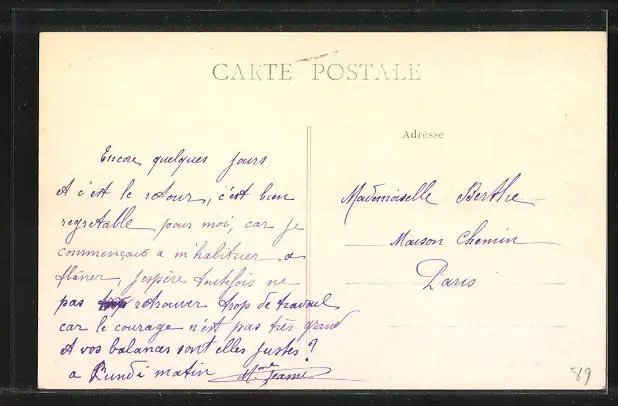 CARTE POSTALE
Adresse
Encore quelques jours
et c'est le retour, c'est bien
regrettable pour moi, car je
commençais a m'habituer a
flâner, j'espère toutefois ne
pas retrouver trop de travail
car le courage n'est pas très grand
et vos balances sont elles justes?
a Lundi matin Mme Jeanne
Mademoiselle Berthe
Maison Chemin
Paris
89